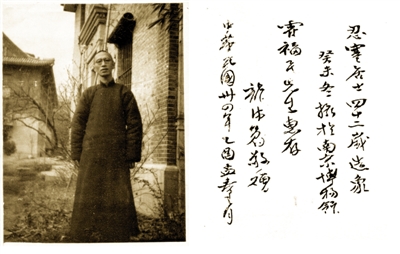 忍寒居士四十二歲造象
癸未冬攝於南京博物館
霍福民先生惠存
龍沐勛敬贈
中華民國卅四年乙酉孟春月